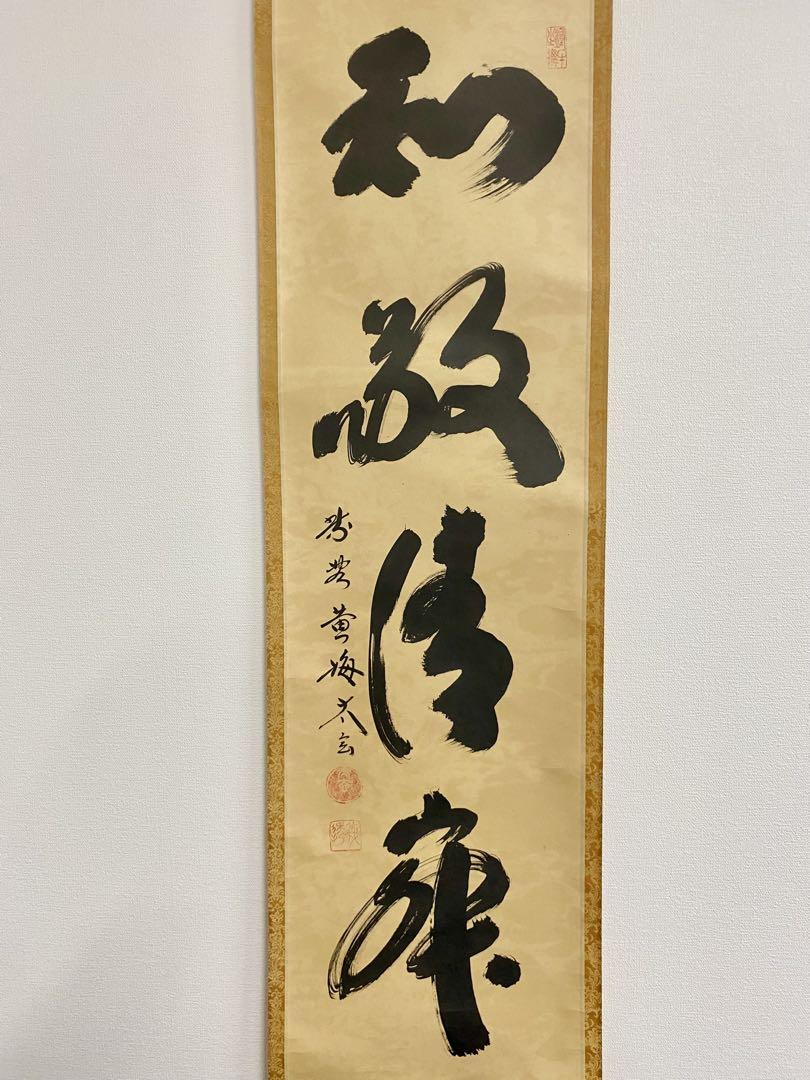 和敬清寂
紫埜黄梅太玄